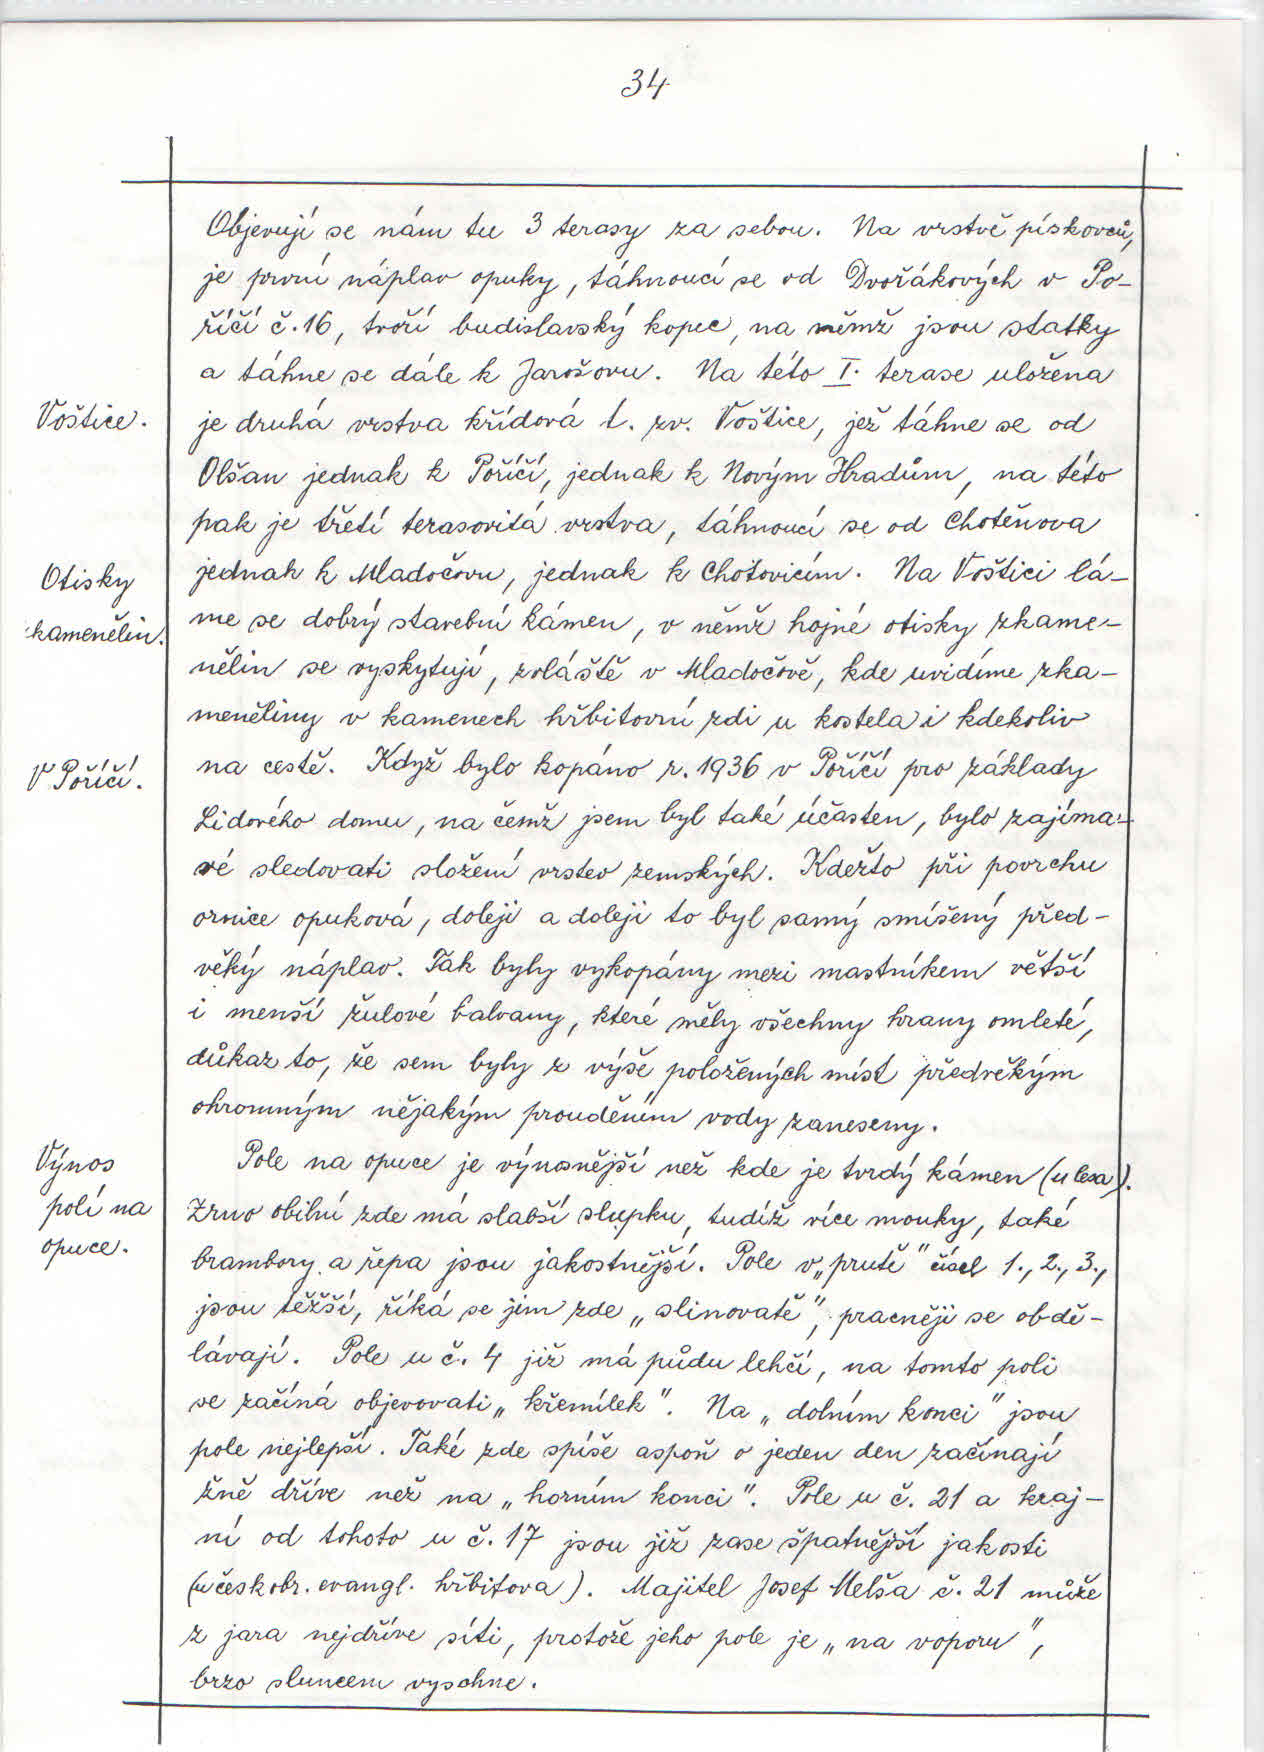 34
Objevují se nám tu 3 terasy za sebou. Na vrstvě pískovců,
je první náplav opuky, táhnoucí se od Dvořákových v Po-
říčí č. 16, tvoří budislavský kopec, na němž jsou statky
a táhne se dále k Jarošovu. Na této I. terase uložena
Voštice.
je druhá vrstva křídová t. zv. Voštice, jež táhne se od
Olšan jednak k Poříčí, jednak k Novým Hradům, na této
pak je třetí terasovitá vrstva, táhnoucí se od Chotěnova
Otisky
zkamenělin.
jednak k Mladočovu, jednak k Chotovicím. Na Voštici lá-
me se dobrý stavební kámen, v němž hojné otisky zkame-
nělin se vyskytují, zvláště v Mladočově, kde uvidíme zka-
meněliny v kamenech hřbitovní zdi u kostela i kdekoliv
V Poříčí.
na cestě. Když bylo kopáno r. 1936 v Poříčí pro základy
Lidového domu, na čemž jsem byl také účasten, bylo zajíma-
vé sledovati složení vrstev zemských. Kdežto při povrchu
ornice opuková, doleji a doleji to byl samý smíšený před-
věký náplav. Tak byly vykopány mezi mastníkem větší
i menší žulové balvany, které měly všechny hrany omleté,
důkaz to, že sem byly z výše položených míst předvěkým
ohromným nějakým prouděním vody zaneseny.
Výnos
polí na
opuce.
Pole na opuce je výnosnější než kde je tvrdý kámen (u lesa).
Zrno obilní zde má slabší slupku, tudíž více mouky, také
brambory a řepa jsou jakostnější. Pole v „prutě" čísel 1., 2., 3.,
jsou těžší, říká se jim zde „slinovatě", pracněji se obdě-
lávají. Pole u č. 4 již má půdu lehčí, na tomto poli
se začíná objevovati „křemílek". Na „dolním konci" jsou
pole nejlepší. Také zde spíše aspoň o jeden den začínají
žně dříve než na „horním konci". Pole u č. 21 a kraj-
ní od tohoto u č. 17 jsou již zase špatnější jakosti
(u českobr. evangl. hřbitova). Majitel Josef Melša č. 21 může
z jara nejdříve síti, protože jeho pole je „na voporu",
brzo sluncem vyschne.